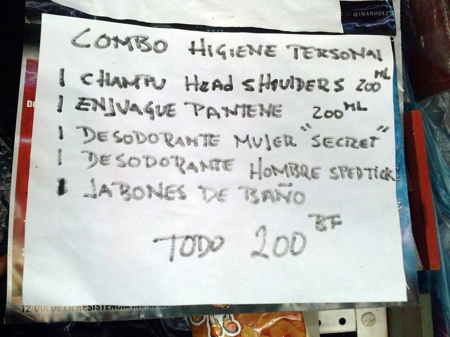 // @IMARHDEZ
COMBO HIGIENE PERSONAL
1 CHAMPU HEAD SHOULDERS 200 ML
1 ENJUAGUE PANTENE 200 ML
1 DESODORANTE MUJER "SECRET"
1 DESODORANTE HOMBRE SPEDTICK
1 JABONES DE BAÑO
TODO 200 BF
12 DÍA DE LA RESISTENCIA INDÍGENA